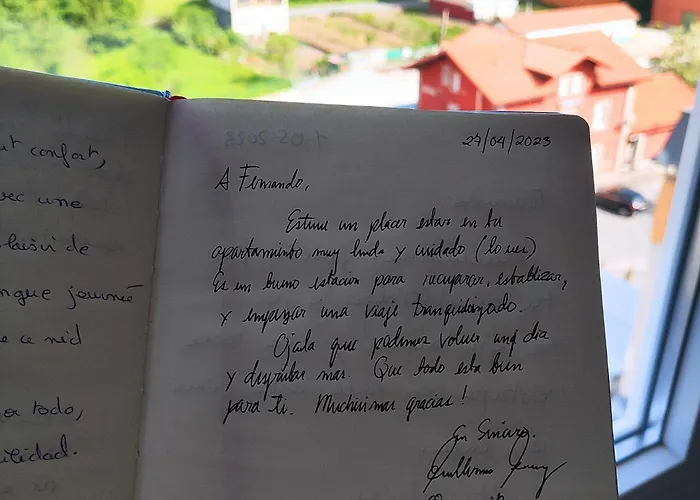 ut confort,
vec une
plaisir de
ngue journée
e ce nid
a todo,
ilidad.
1-05-2023
27/04/2023
A Fernando,
Estuve un placer estar en tu
apartamiento muy linda y cuidado (lo ves)
Es un bueno estacion para recuparar, establizar,
y empezar una viaje tranquidizado.
Ojala que podemos volver una dia
y disfrutar mas. Que todo esta bien
para ti. Muchisimas gracias!
En Sincero.
Guillermo